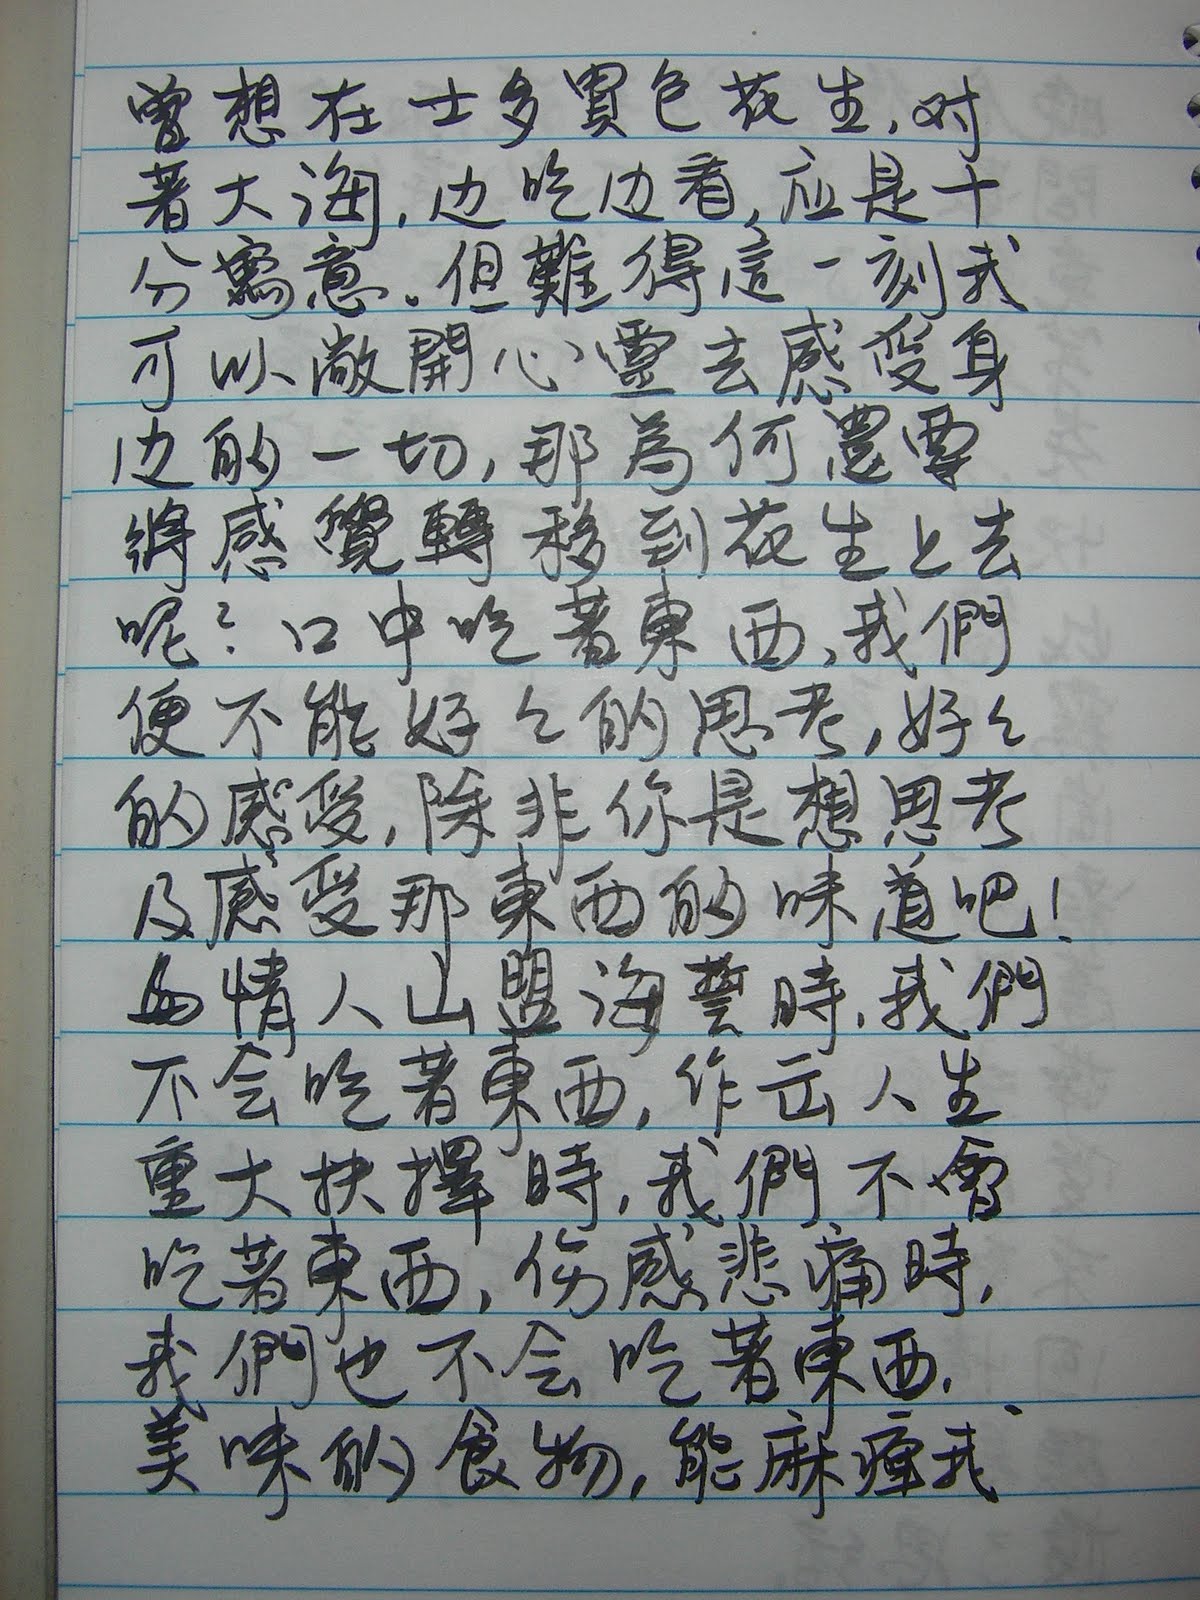 曾想在士多買包花生,对
著大海,边吃边看,应是十
分寫意。但難得這一刻我
可以敞開心靈去感受身
边的一切,那為何還要
將感覺轉移到花生上去
呢?口中吃著東西,我們
便不能好々的思考,好々
的感受,除非你是想思考
及感受那東西的味道吧!
与情人山盟海誓時,我們
不会吃著東西,作出人生
重大抉擇時,我們不會
吃著東西,伤感悲痛時,
我們也不会吃著東西.
美味的食物,能麻痺我